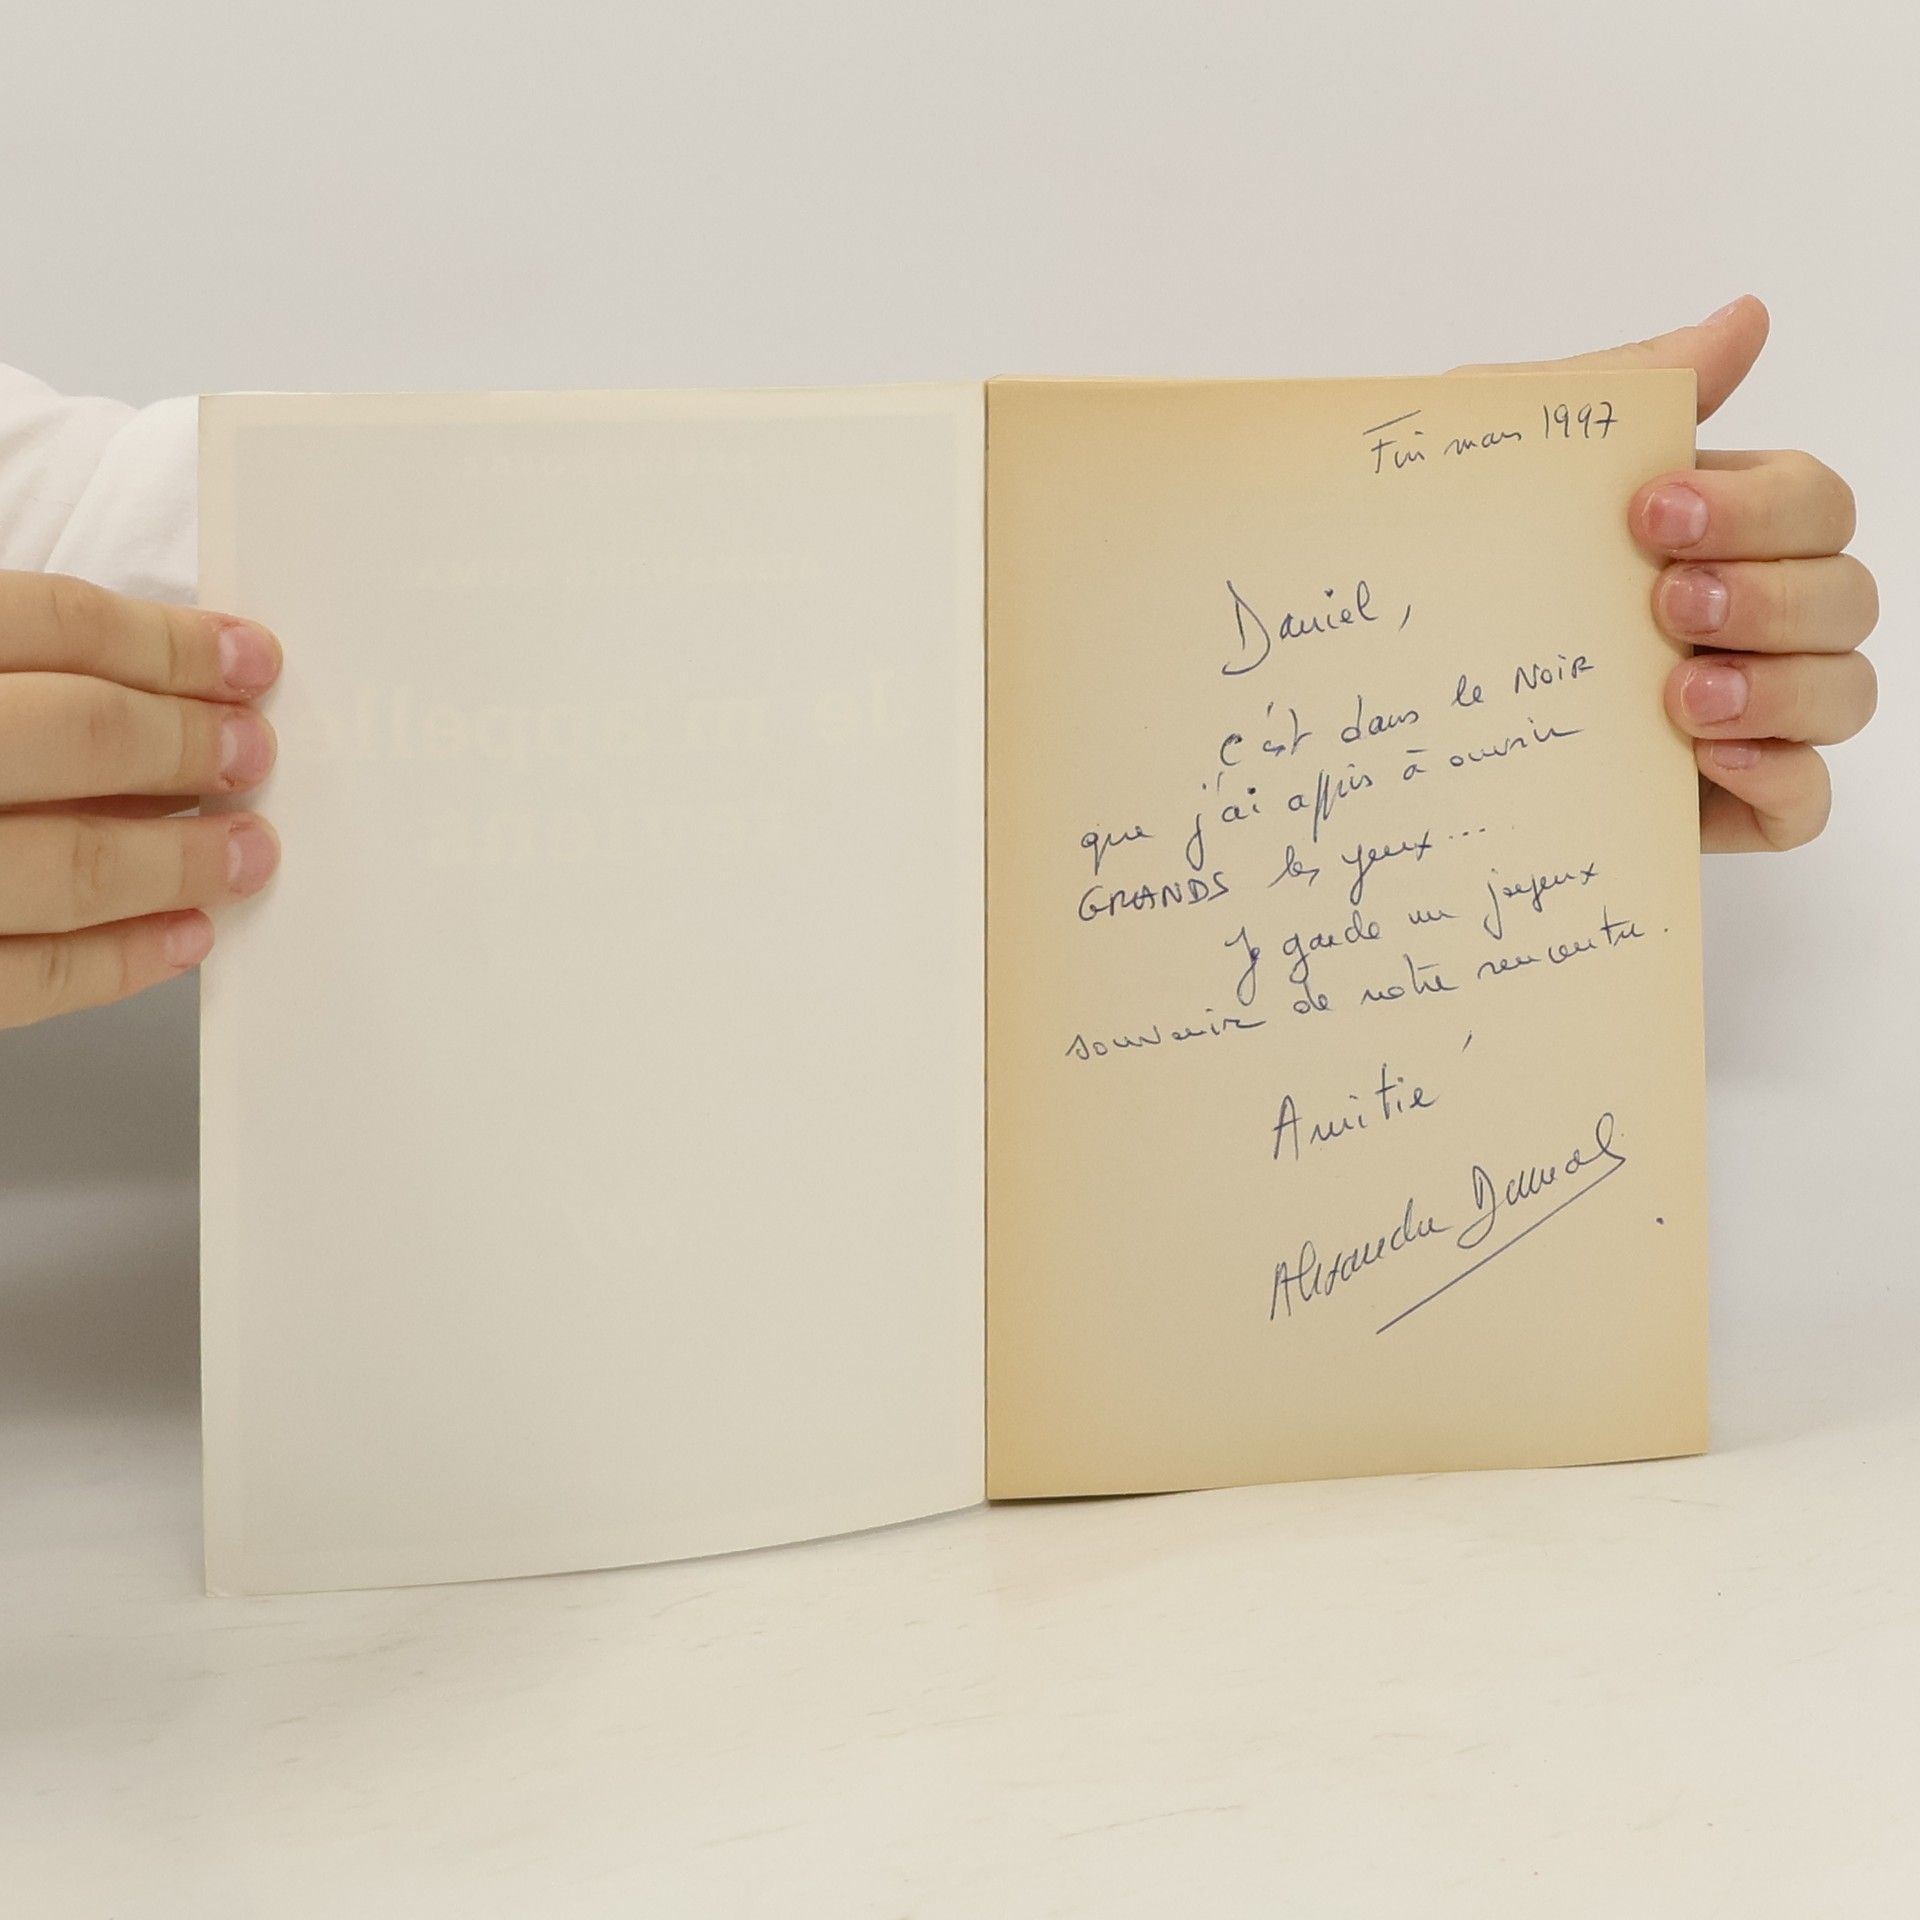 Fin mars 1997
Daniel,
C'est dans le NOIR
que j'ai appris à ouvrir
GRANDS les yeux...
Je garde un joyeux
souvenir de notre rencontre.
Amitié
Alexandre